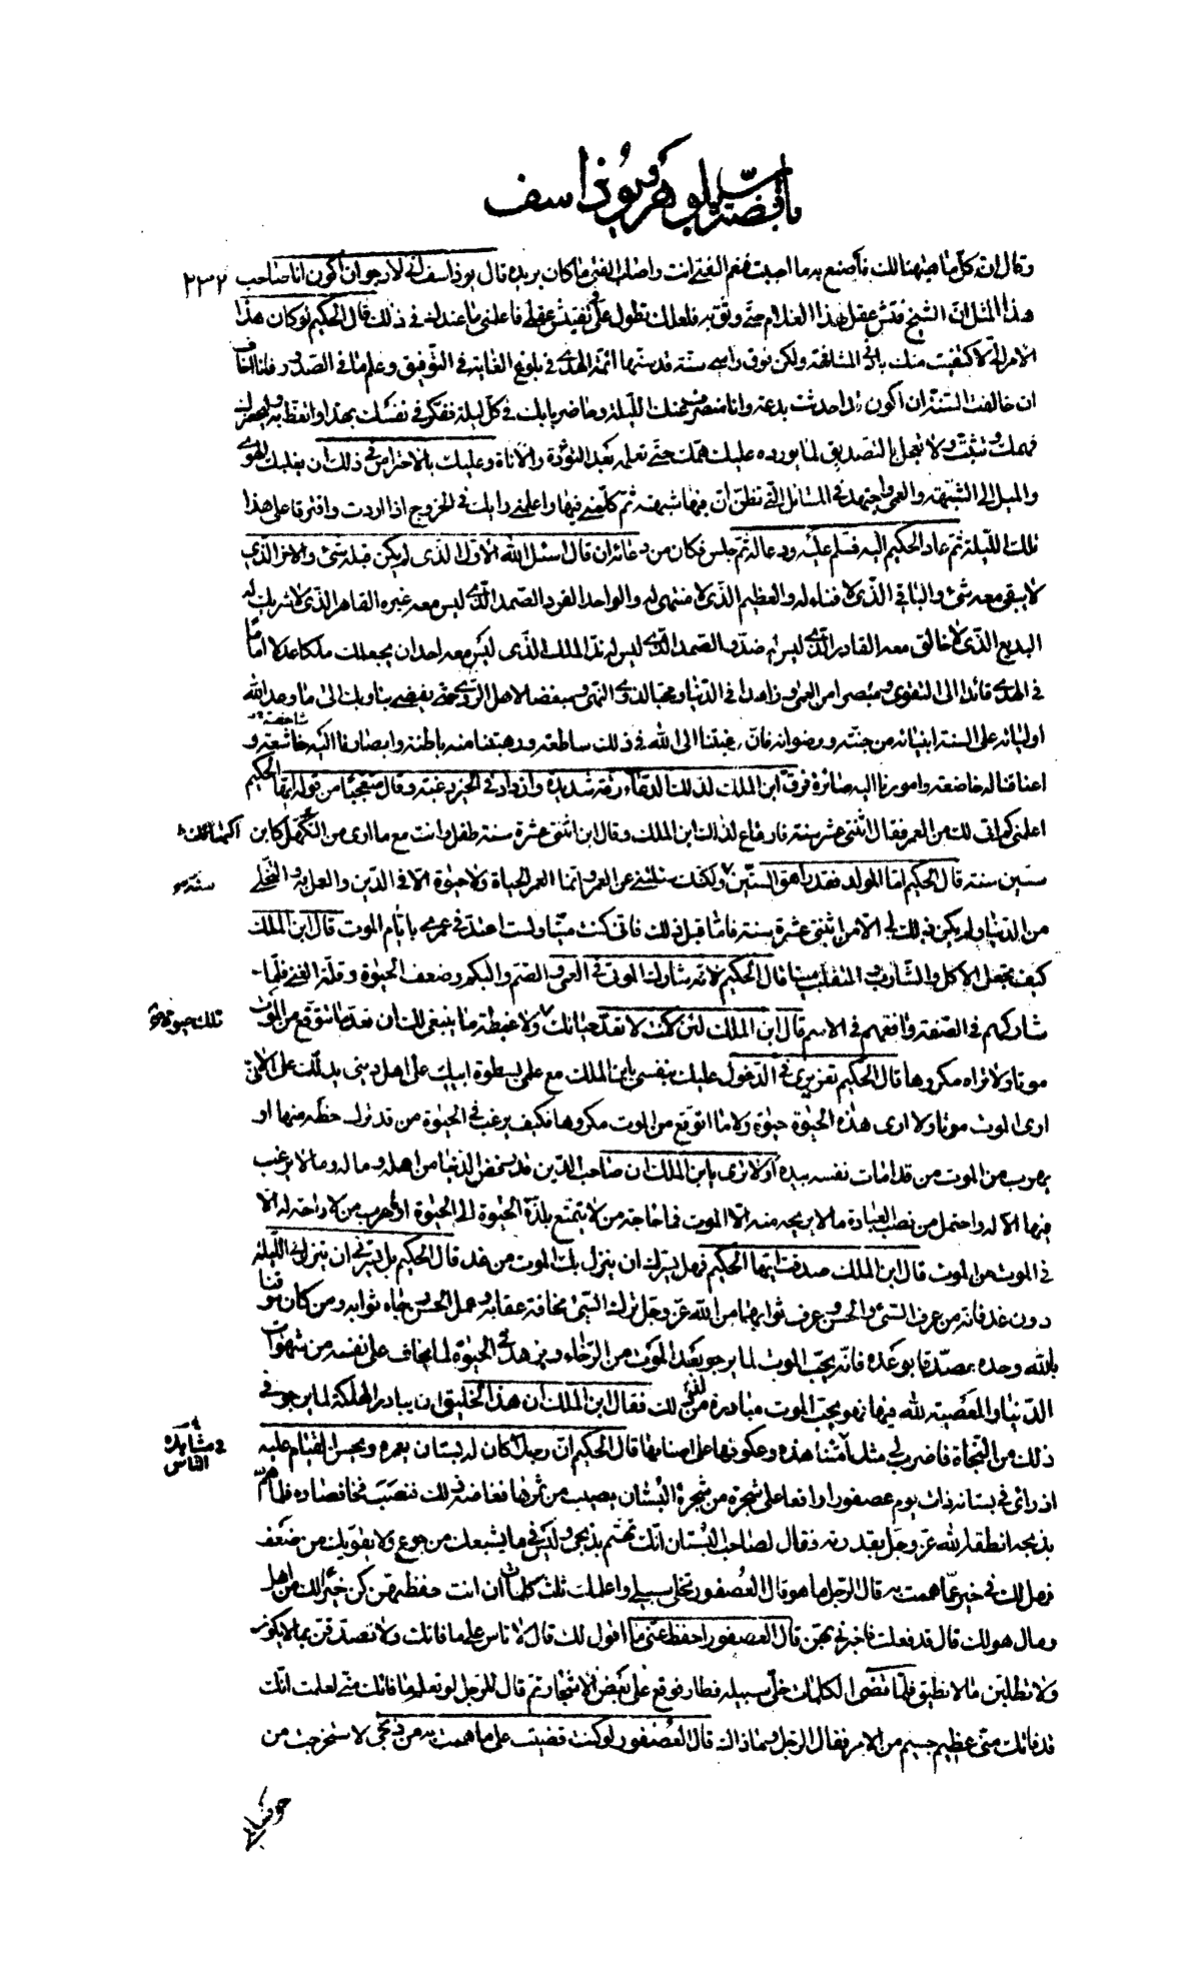 باب قصة بلوهر وبوذاسف
٢٣٢
وقال ان كل ما هيهنا لك فاصنع به ما احببت فنعم الفتى انت واصاب الفتى ما كان يريده قال يوذاسف انى لارجو ان اكون انا صاحب
هذا المثل ان الشيخ فتش عقل هذا الغلام حتى وثق به فلعلك تطول على فى تفتيش عقلى فاعلمنى ما عندك فى ذلك قال الحكيم لو كان هذا
الامر الى لاكتفيت منك بادنى المشافهة ولكن فوق راسى سنة قد سنها ائمة الهدى فى بلوغ الغاية فى التوفيق وعلم ما فى الصدور فانا اخاف
ان خالفت السنة ان اكون قد احدثت بدعة وانا منصرف عنك الليلة وحاضر بابك فى كل ليلة ففكر فى نفسك بهذا واتعظ به وليحضرك
فهمك وتثبت ولا تعجل بالتصديق لما يورده عليك همك حتى تعلمه بعد التؤدة والاناة وعليك بالاحتراس فى ذلك ان يغلبك الهوى
والميل الى الشبهة والعمى واجتهد فى المسائل التى تظن ان فيها شبهة ثم كلمنى فيها واعلمنى رايك فى الخروج اذا اردت وافترقا على هذا
تلك الليلة ثم عاد الحكيم اليه فسلم عليه ودعا له ثم جلس فكان من دعائه ان قال اسئل الله الاول الذى لم يكن قبله شئ والاخر الذى
لا يبقى معه شئ والباقى الذى لا فناء له والعظيم الذى لا منتهى له والواحد الفرد الصمد الذى ليس معه غيره القاهر الذى لا شريك له
البديع الذى لا خالق معه القادر الذى ليس له ضد والصمد الذى ليس له ند الملك الذى ليس معه احد ان يجعلك ملكا عدلا اماما
فى الهدى قائدا الى التقوى ومبصرا من العمى وزاهدا فى الدنيا ومحبا لذوى النهى ومبغضا لاهل الردى حتى يفضى بنا وبك الى ما وعد الله
اوليائه على السنة انبيائه من جنته ورضوانه فان رغبتنا الى الله فى ذلك ساطعة ورهبتنا منه باطنة وابصارنا اليه خاشعة و
شاخصة
اعناقنا له خاضعة وامورنا اليه صائرة فرق ابن الملك لذلك الدعاء رقة شديدة وازداد فى الخير رغبة وقال متعجبا من قوله ايها الحكيم
اعلمنى كم اتى لك من العمر فقال اثنتى عشر سنة فارتاع لذلك ابن الملك وقال ابن اثنتى عشرة سنة طفل وانت مع ما ارى من التكهل كابن
ستين سنة قال الحكيم اما المولد فقد راهق الستين ولكنك سئلتنى عن العمر وانما العمر الحياة ولا حيوة الا فى الدين والعمل به والتخلى
من الدنيا ولم يكن ذلك لى الا من اثنتى عشرة سنة فاما قبل ذلك فانى كنت ميتا ولست اعتد فى عمرى بايام الموت قال ابن الملك
كيف تجعل الاكل والشارب والمتقلب ميتا قال الحكيم لانه شارك الموتى فى العمى والصم والبكم وضعف الحيوة وقلة الغنى فلما
شاركهم فى الصفة وافقهم فى الاسم قال ابن الملك لئن كنت لا تعد حياتك ولا غبطة ما ينبغى لك ان تعد ما تتوقع من الموت
تلك حيوة
موتا ولا تراه مكروها قال الحكيم تغريرى فى الدخول عليك بنفسى يابن الملك مع علمى بسطوة ابيك على اهل دينى يدلك على انى لا
ارى الموت موتا ولا ارى هذه الحيوة حيوة ولا ما اتوقع من الموت مكروها فكيف يرغب فى الحيوة من قد ترك حظه منها او
يهرب من الموت من قد امات نفسه بيده اولا ترى يابن الملك ان صاحب الدين قد رفض الدنيا من اهله وماله وما لا يرغب
فيها الا له واحتمل من نصب العبادة ما لا يريحه منه الا الموت فما حاجة من لا يتمتع بلذة الحيوة الى الحيوة او يهرب من لا راحة له الا
فى الموت من الموت قال ابن الملك صدقت ايها الحكيم فهل يسرك ان ينزل بك الموت من غد قال الحكيم بل يسرنى ان ينزل بى الليلة
دون غد فانه من عرف السيئ والحسن وعرف ثوابهما من الله عز وجل ترك السيئ مخافة عقابه وعمل الحسن رجاء ثوابه ومن كان موقنا
بالله وحده مصدقا بوعده فانه يحب الموت لما يرجو بعد الموت من الرخاء ويزهد فى الحيوة لما يخاف على نفسه من شهوات
الدنيا والمعصية لله فيها فهو يحب الموت مبادرة من ذلك فقال ابن الملك ان هذا لخليق ان يبادر الهلكة لما يرجو فى
ذلك من النجاة فاضرب لى مثل امتنا هذه وعكوفها على اصنامها قال الحكيم ان رجلا كان له بستان يعمره ويحسن القيام عليه
فى مشابهة
الناس
اذ راى فى بستانه ذات يوم عصفورا واقعا على شجرة من شجرة البستان يصيب من ثمرها فغاضه ذلك فنصب فخا فصاده فلما هم
بذبحه انطقه الله عز وجل بقدرته فقال لصاحب البستان انك تهتم بذبحى وليس فى ما يشبعك من جوع ولا يقويك من ضعف
فهل لك فى خير مما هممت به قال الرجل ما هو قال العصفور تخلى سبيلى واعلمك ثلث كلمات ان انت حفظتهن كن خيرا لك من اهل
ومال هو لك قال قد فعلت فاخبرنى بهن قال العصفور احفظ عنى ما اقول لك قال لا تاس على ما فاتك ولا تصدقن بما لا يكون
ولا تطلبن ما لا تطيق فلما قضى الكلمات خلى سبيله فطار فوقع على بعض الاشجار ثم قال للرجل لو تعلم ما فاتك منى لعلمت انك
قد فاتك منى عظيم جسيم من الامر فقال الرجل وما ذاك قال العصفور لو كنت قضيت على ما هممت به من ذبحى لاستخرجت من
حوصلتى